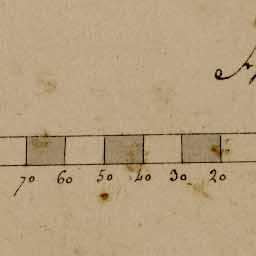 70 60 50 40 30 20